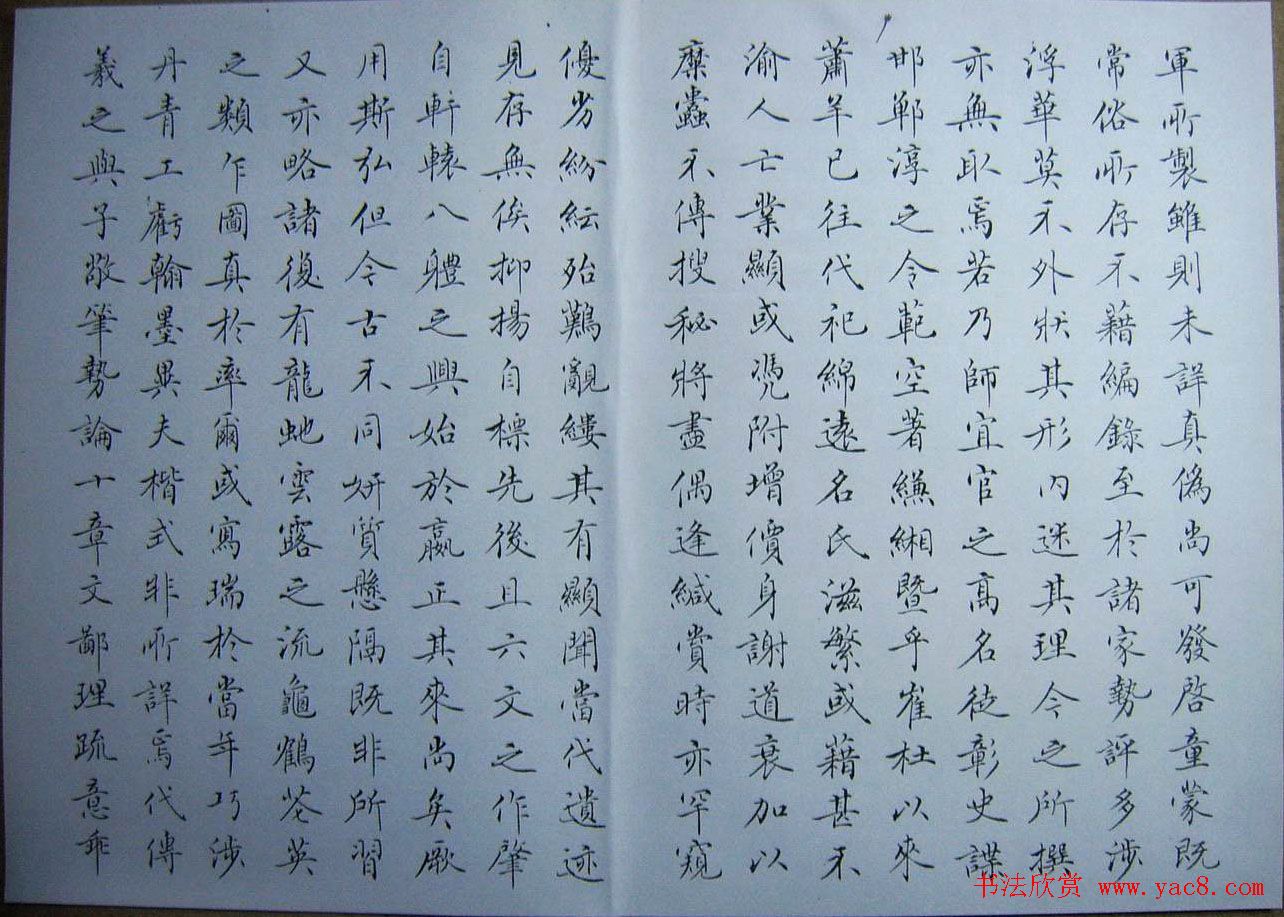 軍所製雖則未詳真偽尚可發啓童蒙既
常俗所存不藉編錄至於諸家勢評多涉
浮華莫不外狀其形內迷其理今之所撰
亦無取焉若乃師宜官之高名徒彰史諜
邯鄲淳之令範空著縑緗暨乎崔杜以來
蕭羊已往代祀綿遠名氏滋繁或藉甚不
渝人亡業顯或憑附增價身謝道衰加以
糜蠹不傳搜秘將盡偶逢緘賞時亦罕窺
優劣紛紜殆難覼縷其有顯聞當代遺迹
見存無俟抑揚自標先後且六文之作肇
自軒轅八體之興始於嬴正其來尚矣厥
用斯弘但今古不同妍質懸隔既非所習
又亦略諸復有龍虵雲露之流龜鶴花英
之類乍圖真於率爾或寫瑞於當年巧涉
丹青工虧翰墨異夫楷式非所詳焉代傳
羲之與子敬筆勢論十章文鄙理疏意乖
书法欣赏 www.yac8.com